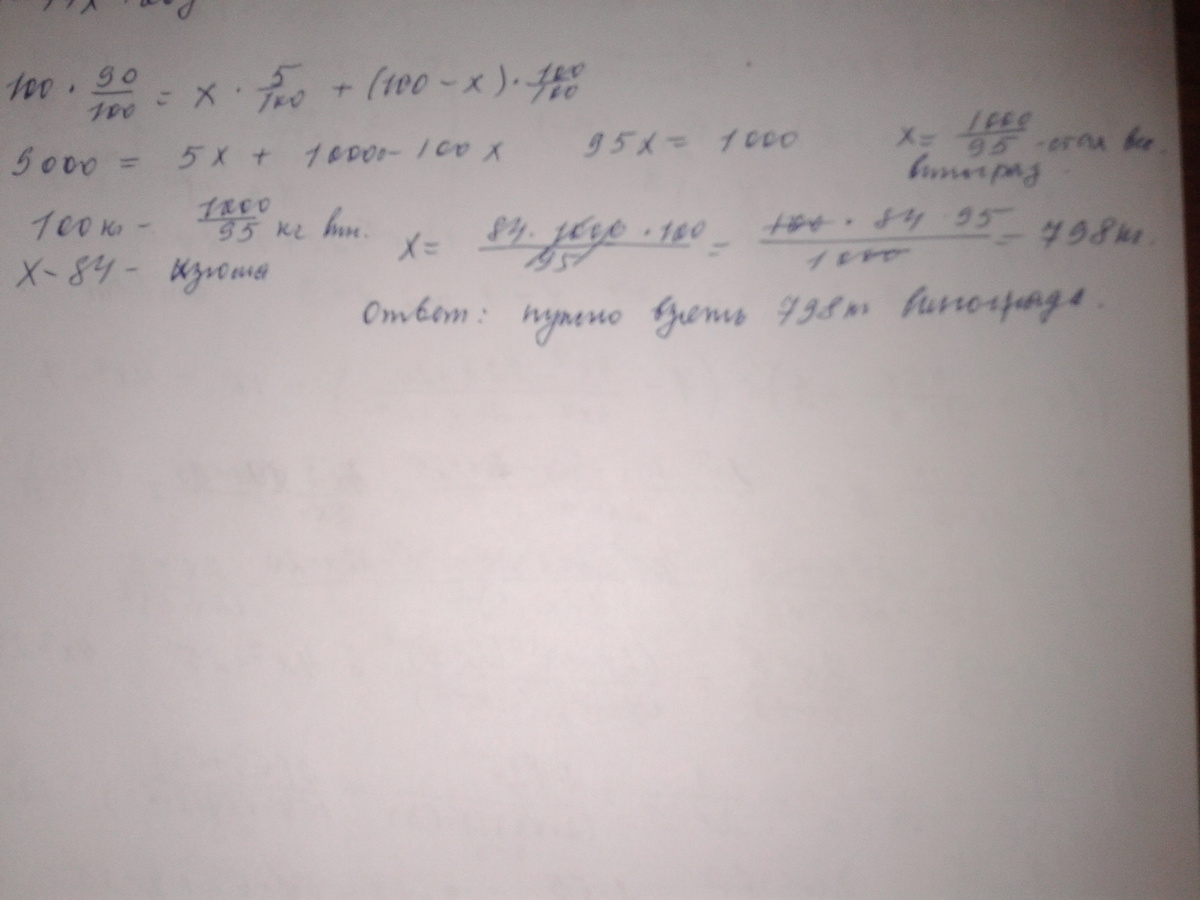 100 · 90/100 = x · 5/100 + (100 - x) · 100/100
9000 = 5x + 10000 - 100x 95x = 1000 x = 1000/95
виноград
100 кг - 1000/95 кг вин.
x - 84 - изюма x = 84 · 1000 · 100/95 = 100 · 84 · 95/1000 = 798 кг.
Ответ: нужно взять 798 кг винограда.